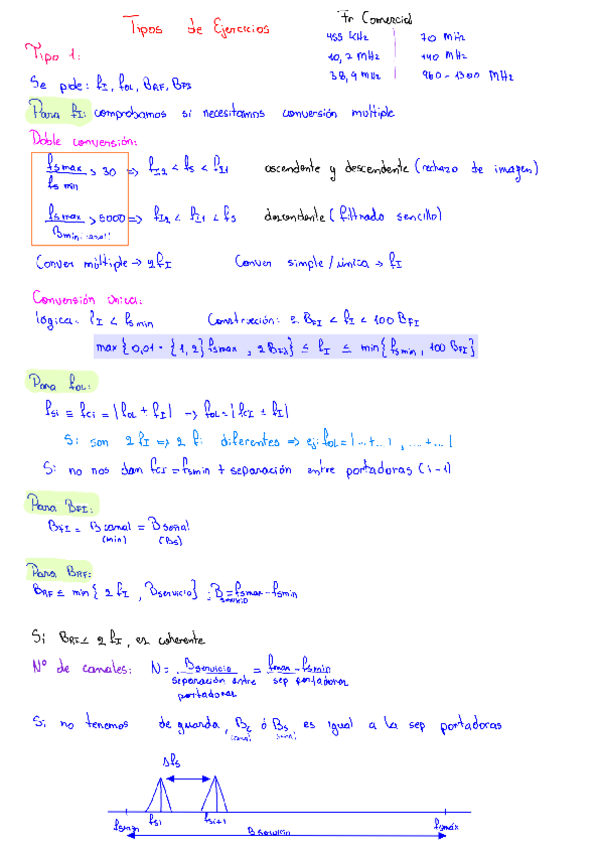 Tipos de Ejercicios
Fr Comercial
455 kHz 70 MHz
10,7 MHz 140 MHz
38,9 MHz 960-1300 MHz
Tipo 1:
Se pide: fI, fOL, BRF, BFI
Para fI: comprobamos si necesitamos conversión multiple
Doble conversión:
fsmax / fs min > 30 => fI2 < fs < fI1 ascendente y descendente (rechazo de imagen)
fsmax / Bmin. > 5000 => fI2 < fI1 < fs descendente (filtrado sencillo)
Conver múltiple → 2 fI Conver simple/única → fI
Conversión única:
lógica: fI < fsmin Construcción: 2 BFI < fI < 100 BFI
max{0,01 · {1,2} fsmax, 2 BFI} ≤ fI ≤ min{fsmin, 100 BFI}
Para fOL:
fsi ≡ fci = |fOL ± fI| → fOL = |fCI ± fI|
Si son 2 fI => 2 fi diferentes => ej: fOL = |...±...|, ...±...|
Si no nos dan fci = fsmin + separación entre portadoras (i-1)
Para BFI:
BFI = Bcanal = Bseñal
(min) (Bs)
Para BRF:
BRF ≤ min{2 fI, Bservicio} : B servicio = fsmax - fsmin
Si BRF ≤ 2 fI, es coherente
Nº de canales: N = Bservicio / separación entre portadoras = fmax - fsmin / sep portadoras
Si no tenemos de guarda, Bc ó Bs es igual a la sep portadoras
canal señal
Δfs
fsmin fsi fsi+1 fsmáx
B servicio